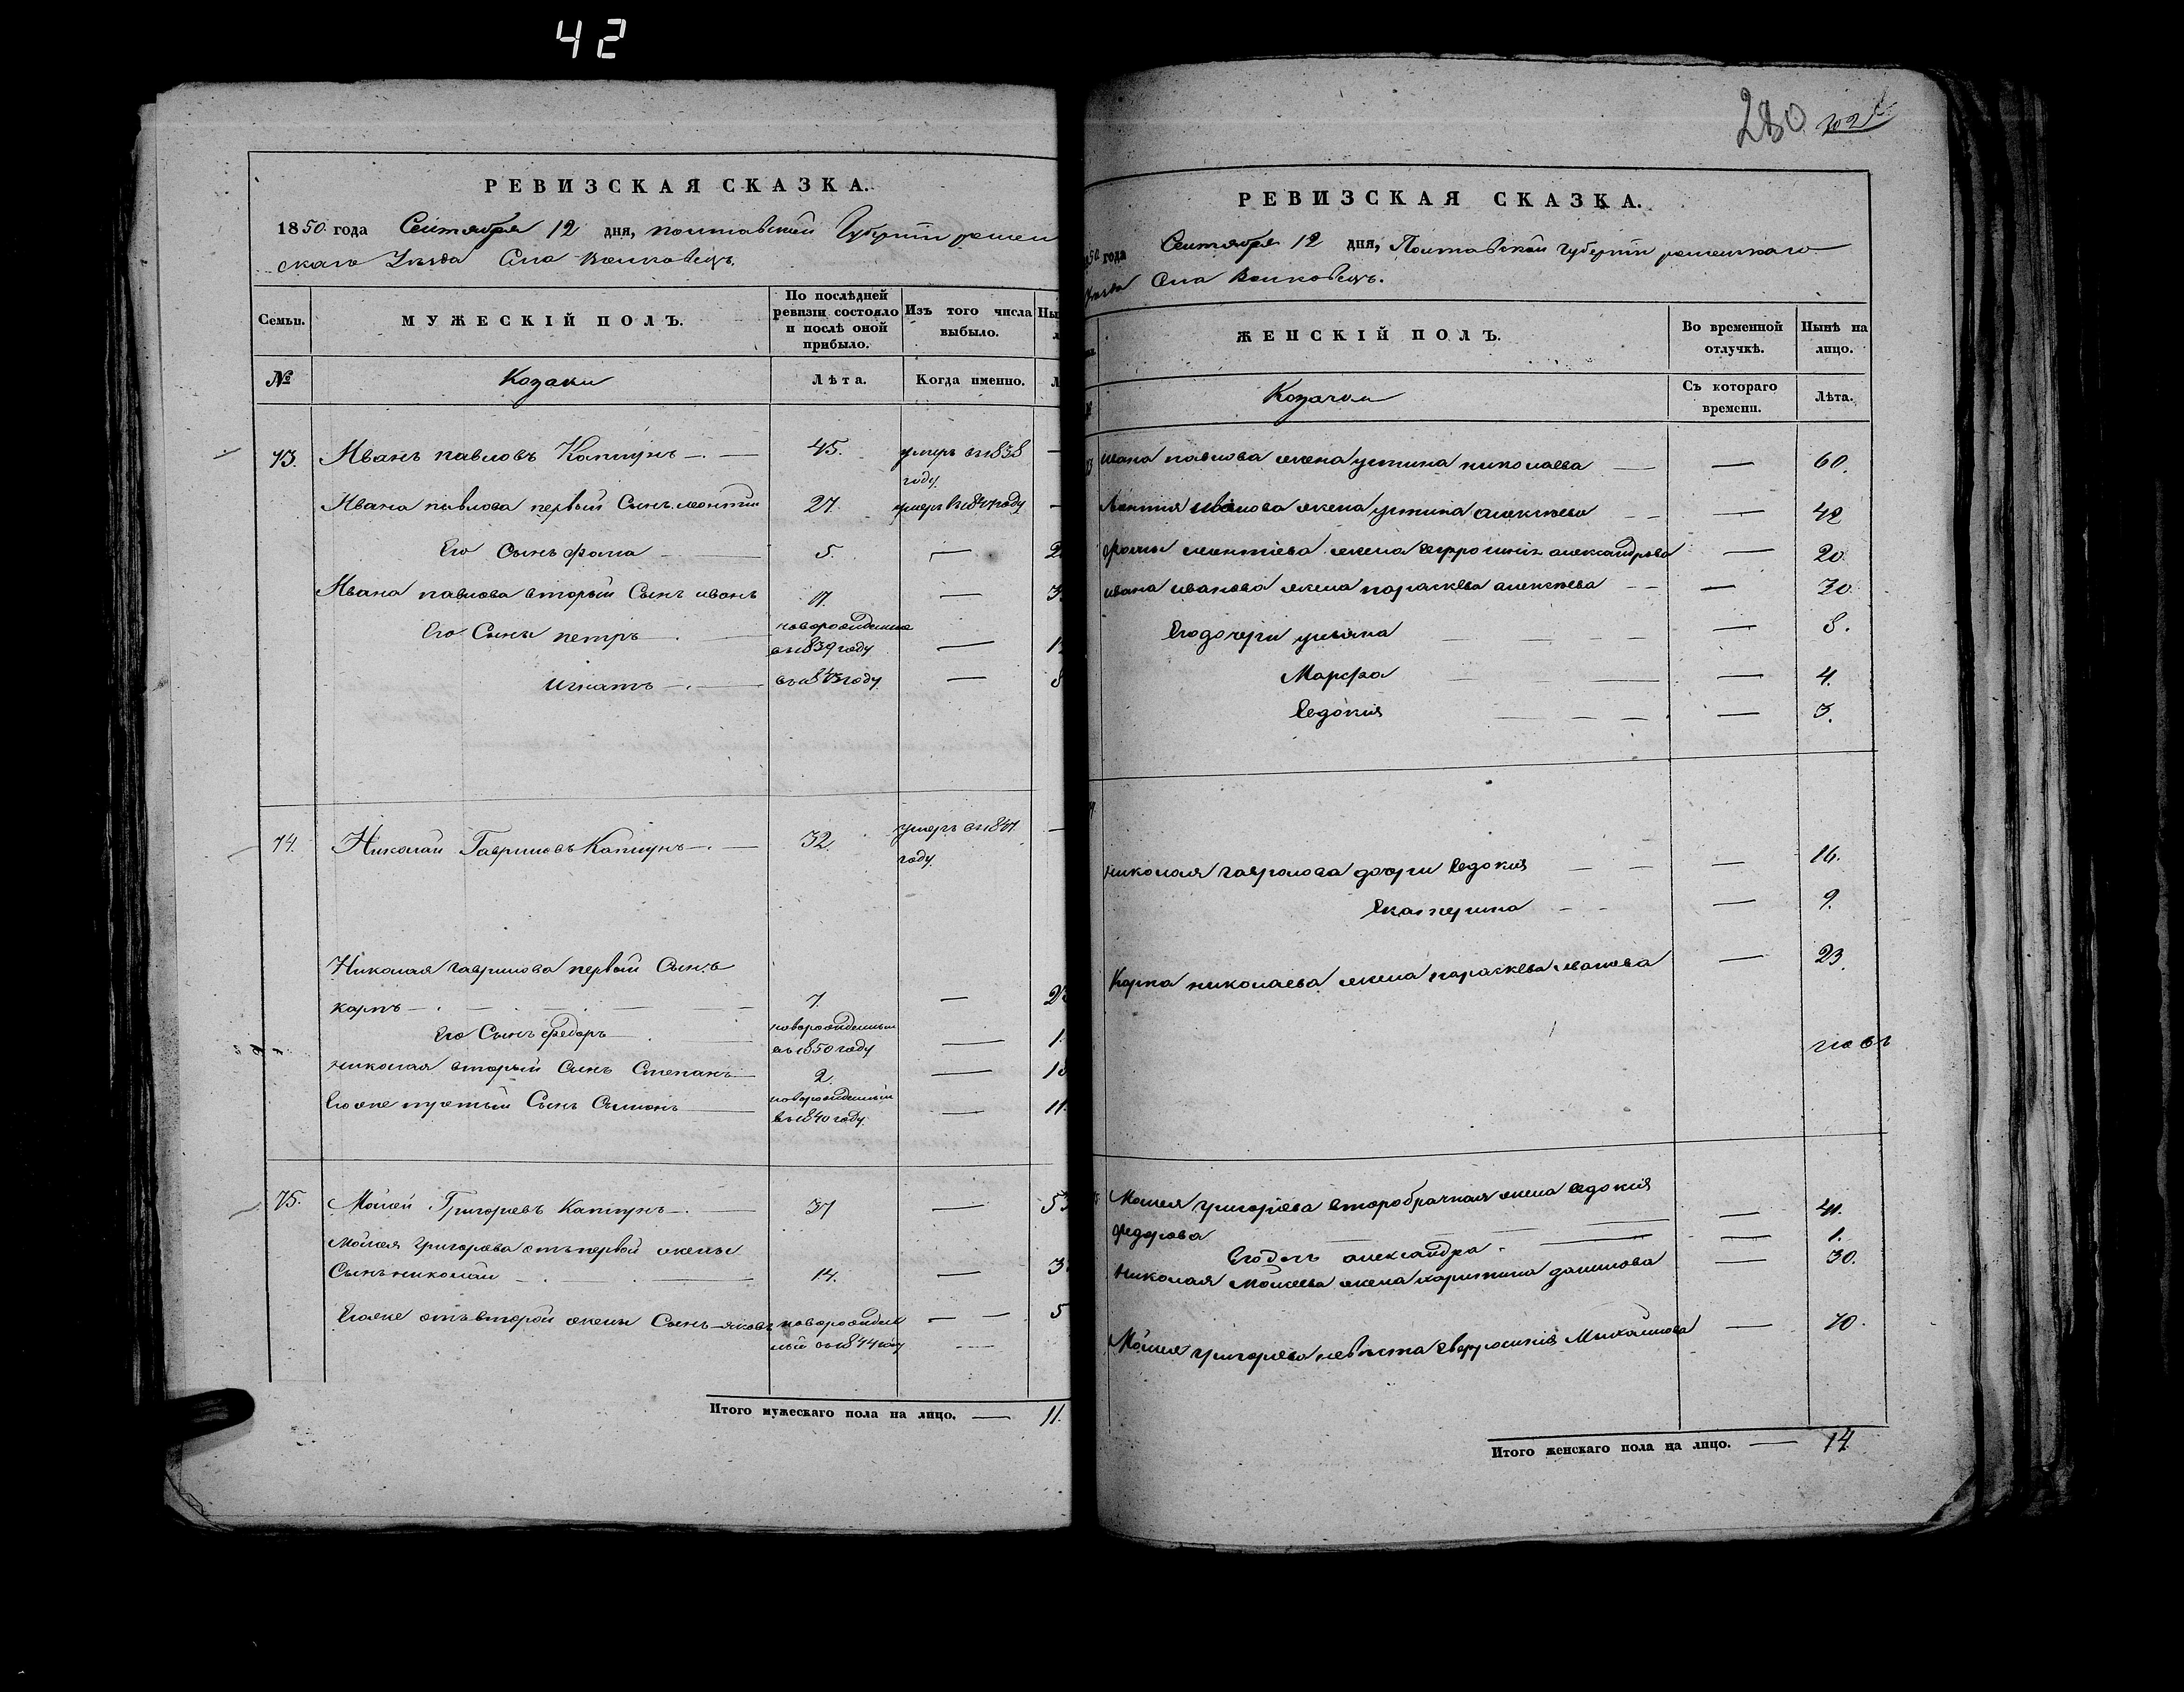 42
РЕВИЗСКАЯ СКАЗКА.
1850 года Сентября 12 дня, полтавской Губерніи ромен
скаго Уезда Села Волковецъ.
Семьи.
МУЖЕСКІЙ ПОЛЪ.
По послѣдней ревизіи состояло и послѣ оной прибыло.
Изъ того числа выбыло.
№
Козаки
Лѣта.
Когда именно.
73. Иванъ павловъ Каптунъ 45. умеръ въ 1838
году.
Ивана павлова первый Сынъ леонтій 27. умеръ въ 1847 году
Его Сынъ фома 5.
Ивана павлова вторый Сынъ иванъ 17.
Его Сыны петръ новорожденные
въ 1839 году
игнатъ въ 1843 году
74. Николай Гавриловъ Каптунъ 32. умеръ въ 1847
году.
Николая гаврилова первый Сынъ
карпъ 7.
Его Сынъ федоръ новорожденный
въ 1850 году 1.
николая вторый Сынъ Степанъ 2. 18
Егоже третьій Сынъ Симонъ новорожденный
въ 1840 году. 11.
75. Мойсей Григорьевъ Каптунъ 37 53
Мойсея григорьева отъ первой жены
Сынъ николай 14.
Егоже отъ второй жены Сынъ яковъ новорожден
ный въ 1844 году 5
Итого мужескаго пола на лицо. 11.
280
302
РЕВИЗСКАЯ СКАЗКА.
года Сентября 12 дня, Полтавской губерніи роменскаго
Села Волковецъ.
ЖЕНСКІЙ ПОЛЪ.
Во временной отлучкѣ.
Нынѣ на лицо.
Козачки
Съ котораго времени.
Лѣта.
ивана павлова жена устина николаева 60.
леонтія иванова жена устина алексѣева 48
фомы леонтіева жена евфросинія александрова 20.
ивана иванова жена параскева алексѣева 30
Его дочери ульяна 8.
Марфа 4.
Евдокія 3.
николая гаврилова дочери Евдокія 16.
Екатерина 9.
Карпа николаева жена параскева иванова 23.
Мойсея григорьева второбрачная жена евдокія
федорова 41.
Его дочь александра 1.
николая Мойсеева жена харитина данилова 30.
Мойсея григорьева невѣстка евфросинія Михайлова 70.
Итого женскаго пола на лицо. 14.